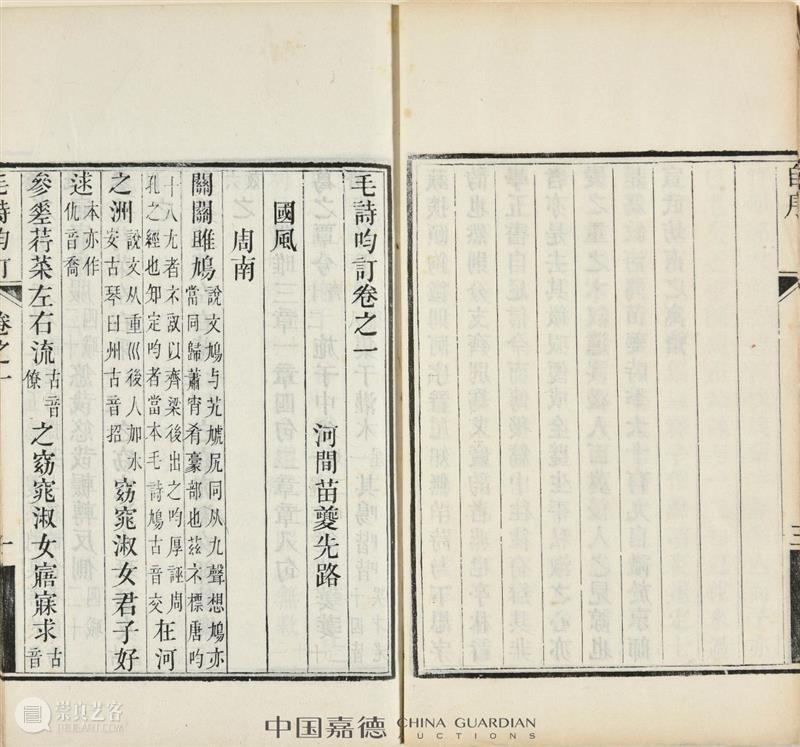 自序
三
毛詩呁訂卷之一
河間苗夔先路
國風
周南
關關雎鳩說文鳩与艽虓尻同从九聲想鳩亦當同歸蕭宵肴豪部也茲不標唐呁
十八九者不敢以齊梁後出之呁厚誣周孔之經也知定呁者當本毛詩鳩古音交在河
之洲說文从重巛後人加水安古琴曰州古音招窈窕淑女君子好
逑本亦作仇音喬
參差荇菜左右流古音僚之窈窕淑女寤寐求古音
毛詩呁訂 卷之一 一
崇真艺客
中国嘉德 CHINA GUARDIAN
AUCTIONS